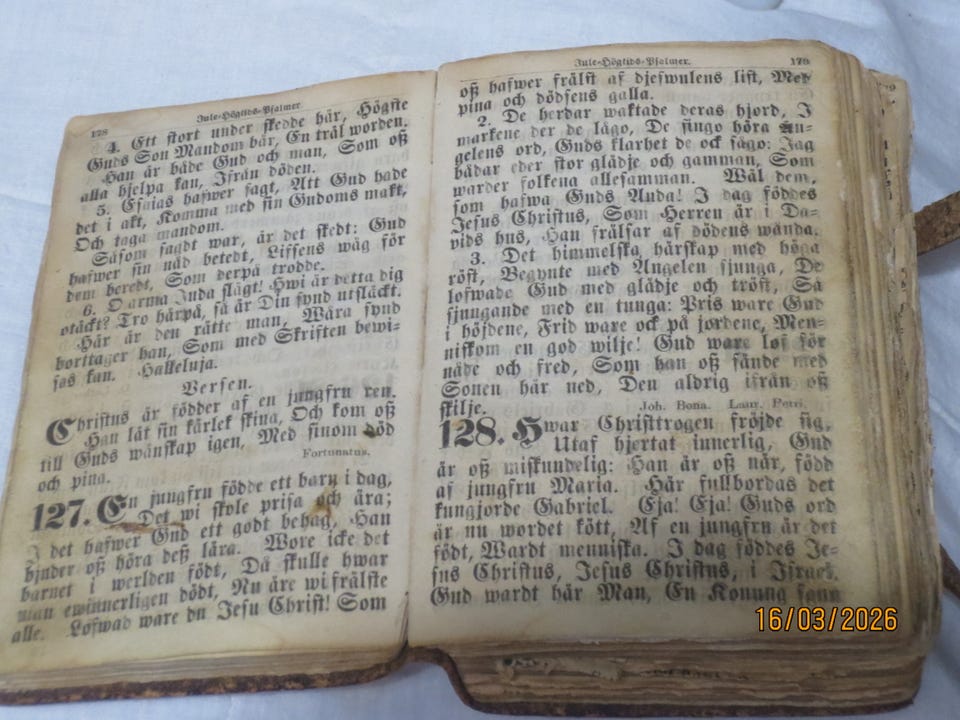 178
Jule-Högtids-Psalmer
4. Ett stort under skedde här, Högste
Guds Son Mandom bär, En träl worden.
Han är både Gud och man, Som oß
alla hjelpa kan, Ifrån döden.
5. Esaias hafwer sagt, Att Gud hade
det i akt, Komma med sin Gudoms makt,
Och taga mandom.
Såsom sagdt war, är det skedt: Gud
hafwer sin nåd betedt, Lifsens wäg för
dem beredt, Som derpå trodde.
6. O arma Juda slägt! Hwi är detta dig
otäckt? Tro härpå, så är Din synd utsläckt.
Här är den rätte man, Wåra synd
borttager han, Som med Skriften bewi-
sas kan. Halleluja.
Versen.
Christus är födder af en jungfru ren.
Han lät sin kärlek skina, Och kom oß
till Guds wänskap igen, Med sinom död
och pina.
Fortunatus.
127. En jungfru födde ett barn i dag,
Det wi skole prisa och ära;
I det hafwer Gud ett godt behag, Han
bjuder oß höra deß lära. Wore icke det
barnet i werlden född, Då skulle hwar
man ewinnerligen dödt, Nu äre wi frälste
alle. Lofwad ware du Jesu Christ! Som
Jule-Högtids-Psalmer.
179
oß hafwer frälst af djefwulens list, Med
pina och dödsens galla.
2. De herdar waktade deras hjord, I
markene der de lågo, De fingo höra Än-
gelens ord, Guds klarhet de ock sågo: Jag
bådar eder stor glädje och gamman, Som
warder folkena allesamman. Wäl dem,
som hafwa Guds Anda! I dag föddes
Jesus Christus, Som Herren är i Da-
vids hus, Han frälsar af dödens wånda.
3. Det himmelska härskap med höga
röst, Begynte med Ängelen sjunga, De
lofwade Gud med glädje och tröst, Så
sjungande med en tunga: Pris ware Gud
i höjdene, Frid ware ock på jordene, Men-
niskom en god wilje! Gud ware lof för
nåde och fred, Som han oß sände med
Sonen här ned, Den aldrig ifrån oß
skilje.
Joh. Bona. Laur. Petri.
128. Hwar Christtrogen fröjde sig,
Utaf hjertat innerlig, Gud
är oß miskundelig: Han är oß när, född
af jungfru Maria. Här fullbordas det
kungjorde Gabriel. Eja! Eja! Guds ord
är nu wordet kött, Af en jungfru är det
född, Wardt menniska. I dag föddes Je-
sus Christus, Jesus Christus, i Israel.
Gud wardt här Man, En Konung sann
16/03/2026